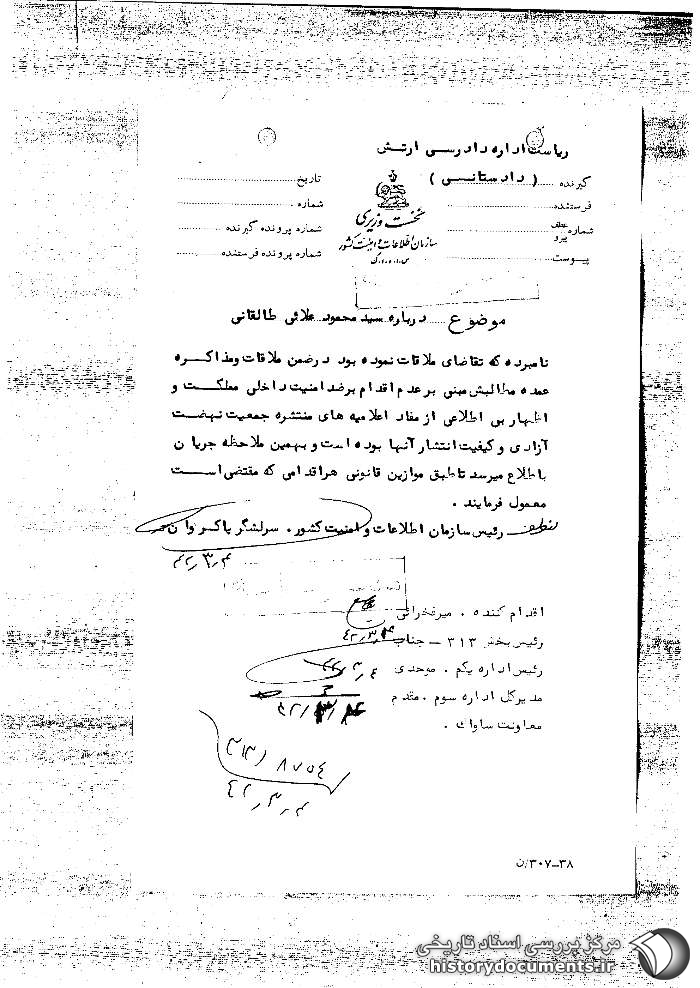 ریاست اداره دادرسی ارتش
گیرنده (دادستانی)
فرستنده
شماره عطف پیرو
پیوست
نخست وزیری
سازمان اطلاعات و امنیت کشور
س.ا.و.ا.ک
تاریخ
شماره
شماره پرونده گیرنده
شماره پرونده فرستنده
موضوع درباره سید محمود علائی طالقانی
نامبرده که تقاضای ملاقات نموده بود در ضمن ملاقات ومذاکره
عمده مطالبش مبنی بر عدم اقدام بر ضد امنیت داخلی مملکت و
اظهار بی اطلاعی از مفاد اعلامیه های منتشره جمعیت نهضت
آزادی و کیفیت انتشار آنها بوده است و بهمین ملاحظه جریان
باطلاع میرسد تا طبق موازین قانونی هر اقدامی که مقتضی است
معمول فرمایند .
رئیس سازمان اطلاعات و امنیت کشور . سرلشگر پاکروان
۴۲,۳,۴
اقدام کننده . میرفخرائی
رئیس بخش ۳۱۳ - جناب
۴۲,۳,۴
رئیس اداره یکم . موحدی
مدیرکل اداره سوم . مقدم
۴۲/۳/۴
معاونت ساواک .
۳۱۳/ ۸۷۵۴
۴۲,۳,۴
۳۸-۳۰۷/ن
مرکز بررسی اسناد تاریخی
historydocuments.ir